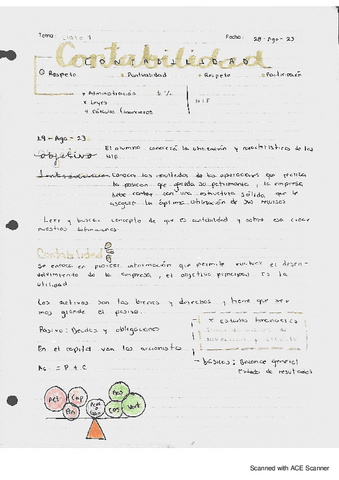 Tema: Clase 1 Fecha: 28-Ago-23
Contabilidad
CONTABILIDAD
Respeto Puntualidad Respeto Participación
Administración %
Leyes NIF
Cálculos financieros
29-Ago-23
Objetivo El alumno conocerá la ubicación y características de las NIF
Introducción Conocer los resultados de las operaciones que realiza
la posición que guarda su patrimonio, la empresa
debe contar con una estructura sólida que le
asegure la óptima utilización de sus recursos
Leer y buscar concepto de que es contabilidad y sobre esa crear
nuestros
Contabilidad
Se enfoca en proveer información que permite evaluar el desen-
volvimiento de la empresa, el objetivo principal es la
utilidad
Los activos son los bienes y derechos, y tiene que ser
mas grande el pasivo.
Pasivo: Deudas y obligaciones
estados financieros
En el capital van los accionistas
básicos: Balance general
Estado de resultados
Ac = P + C
Act Cap Pas
Cos Vent
Scanned with ACE Scanner